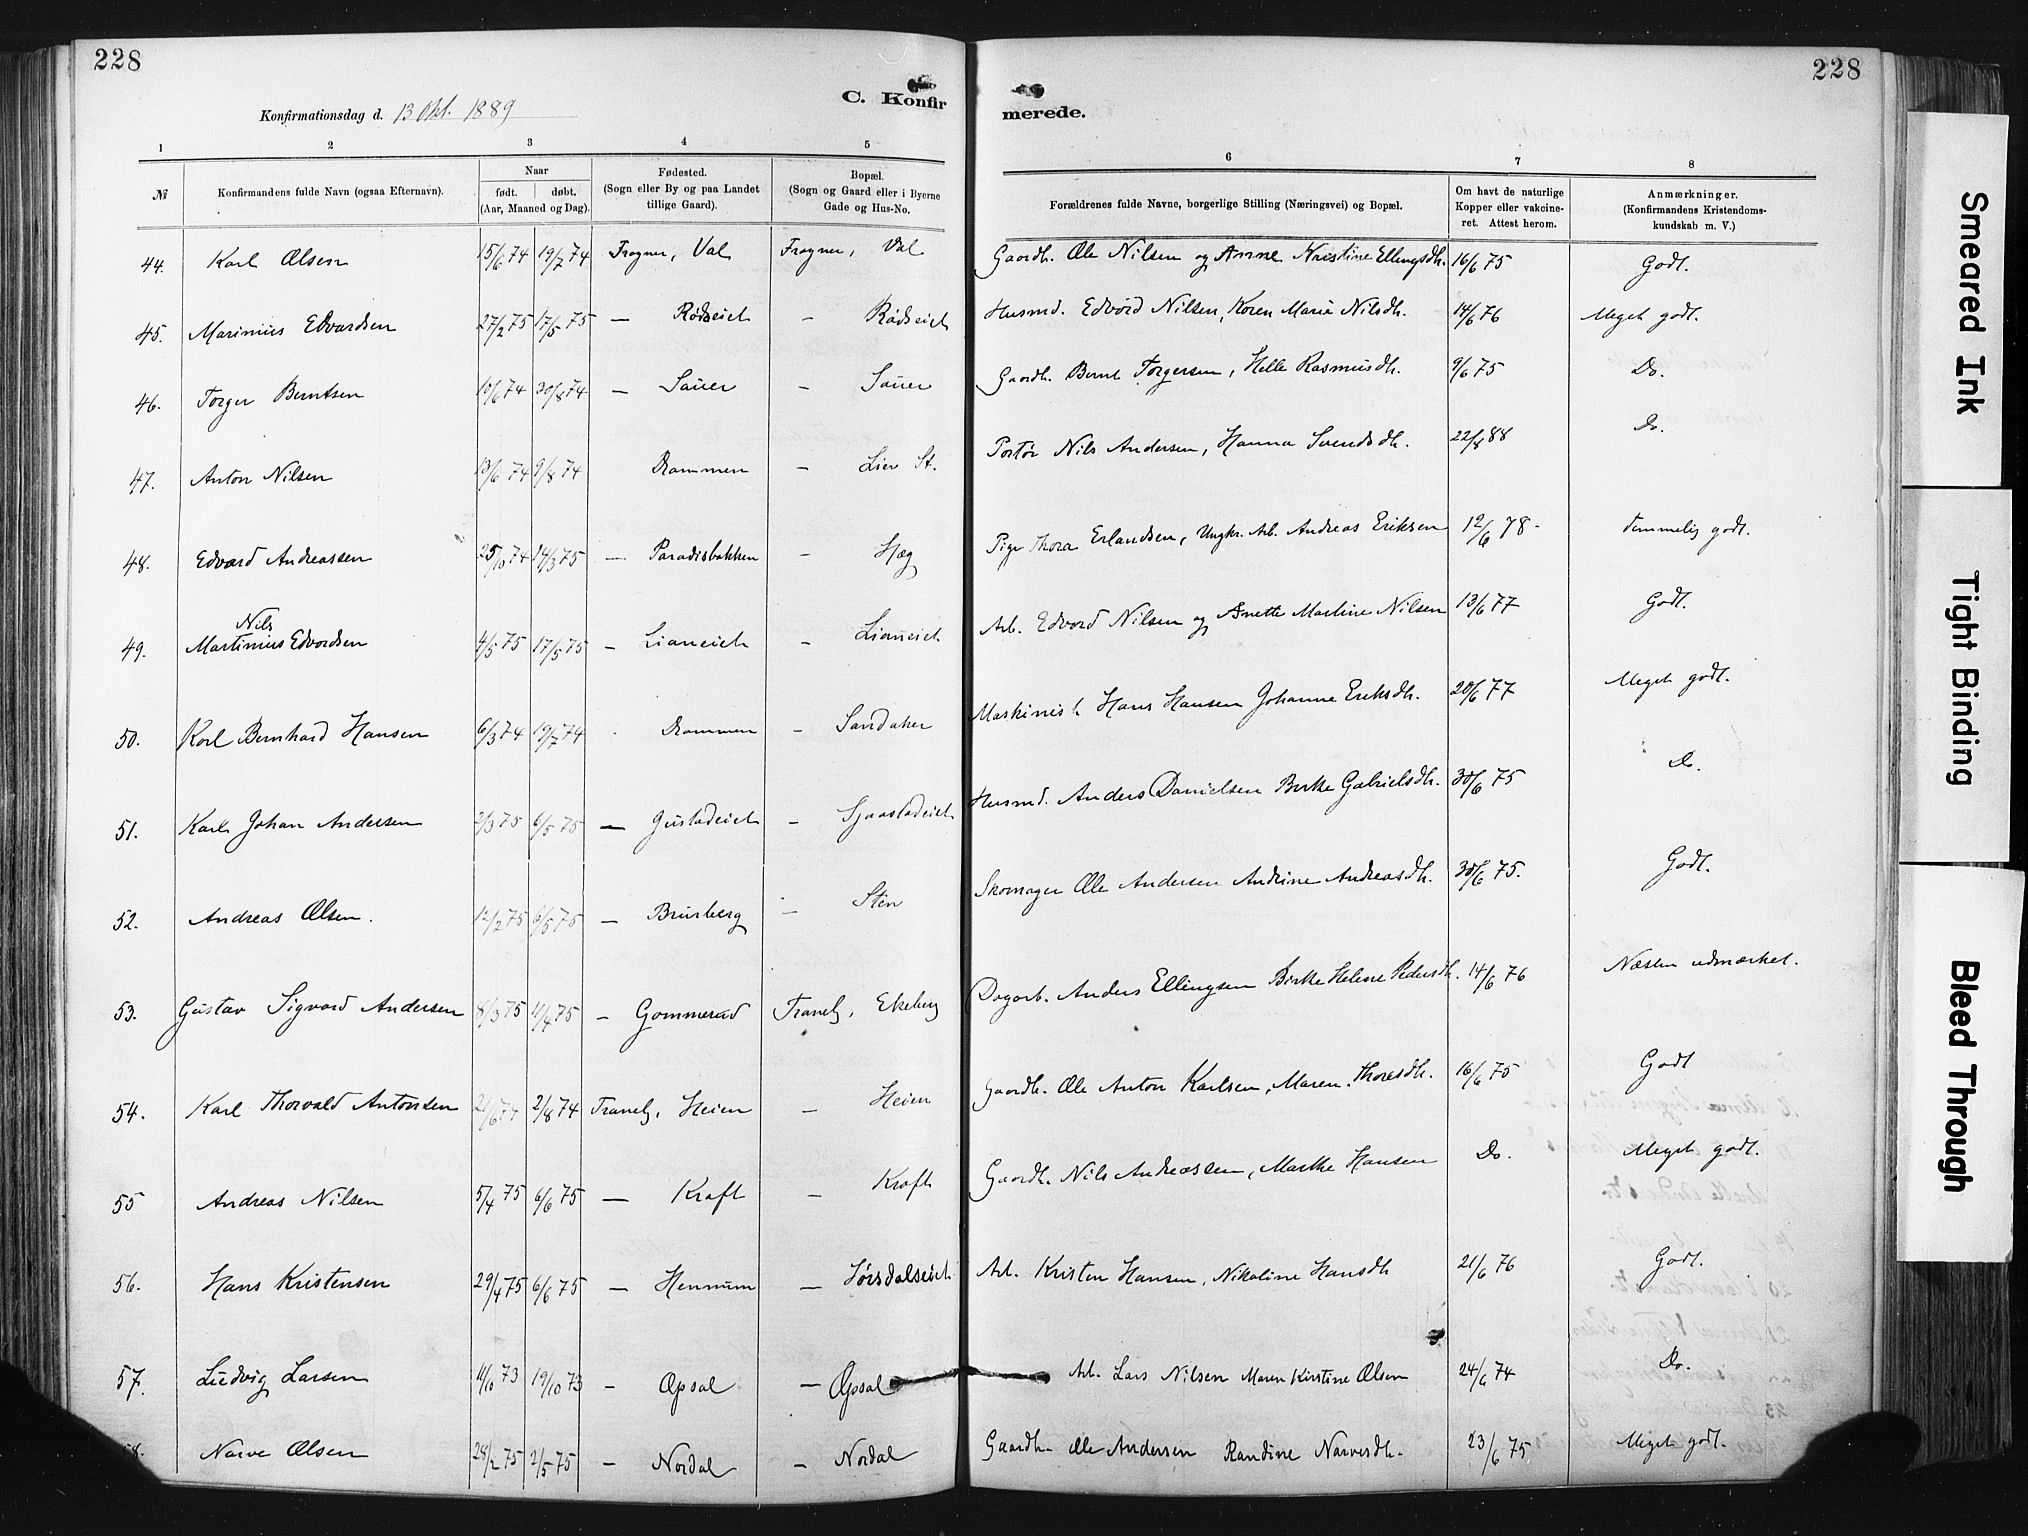 228
228
C. Konfir
merede.
Konfirmationsdag d. 13 Okt. 1889
1 2 3 4 5 6 7 8
№ Konfirmandens fulde Navn (ogsaa Efternavn). Naar født. døbt. (Aar, Maaned og Dag). Fødested. (Sogn eller By og paa Landet tillige Gaard). Bopæl. (Sogn og Gaard eller i Byerne Gade og Hus-No. Forældrenes fulde Navne, borgerlige Stilling (Næringsvei) og Bopæl. Om havt de naturlige Kopper eller vakcineret. Attest herom. Anmærkninger. (Konfirmandens Kristendomskundskab m. V.)
44. Karl Olsen 15/6 74 19/7 74 Frogner, Val Frogner, Val Gaardb. Ole Nilsen og Anne Kristine Ellingsdh. 16/6 75 Godt.
45. Marinius Edvardsen 27/2 75 17/5 75 — Rødseiet – Rødseiet Husmd. Edvard Nilsen, Karen Marie Nilsdh. 14/6 76 Meget godt.
46. Torger Berntsen 10/6 74 30/8 74 — Sauer – Sauer Gaardb. Bernt Torgersen, Helle Rasmusdh. 9/6 75 Do.
47. Anton Nilsen 13/6 74 9/8 74 Drammen – Lier St. Portør Nils Andersen, Hanna Svendsdh. 22/8 88 Do.
48. Edvard Andreassen 25/10 74 14/3 75 — Paradisbakken – Hæg Pige Thora Erlandsen, Ungkr. Arb. Andreas Eriksen 12/6 78- Temmelig godt.
49. Nils Martinius Edvardsen 4/5 75 17/5 75 – Lianeiet – Lianeiet Arb. Edvard Nilsen og Anette Martine Nilsen 13/6 77 Godt.
50. Karl Bernhard Hansen 6/3 74 19/7 74 Drammen – Sandaker Maskinist Hans Hansen Johanne Eriksdh. 20/6 77 Meget godt.
51. Karl Johan Andersen 2/3 75 6/5 75 — Gustadeiet – Sjaastadeiet Husmd. Anders Danielsen Berthe Gabrielsdh. 30/6 75 Do.
52. Andreas Olsen. 12/2 75 6/5 75 — Brusberg – Sten Skomager Ole Andersen Andrine Andreasdh. 30/6 75. Godt.
53. Gustav Sigvard Andersen 8/3 75 11/4 75 – Gommerud Tranby, Ekeberg Dagarb. Anders Ellingsen Birthe Helene Pedersdh. 14/6 76 Næsten udmærket.
54. Karl Thorvald Antonsen 21/6 74 2/8 74 Tranby, Heien – Heien Gaardb. Ole Anton Karlsen, Maren Thoresdh. 16/6 75 Godt
55 Andreas Nilsen 5/4 75 6/6 75 — Kraft – Kraft Gaardb. Nils Andreassen, Marthe Hansen Do. Meget godt.
56. Hans Kristensen 29/4 75 6/6 75 — Hennum — Sørsdalseiet Arb. Kristen Hansen, Nikoline Hansdh 21/6 76 Godt.
57. Ludvig Larsen 11/10 73 19/10 73 – Opsal — Opsal Arb. Lars Nilsen Maren Kirstine Olsen 24/6 74 Do.
58. Narve Olsen 28/2 75 2/5 75 – Nordal – Nordal Gaardb. Ole Andersen Randine Narvesdh. 23/6 75 Meget godt.
Smeared Ink
Tight Binding
Bleed Through